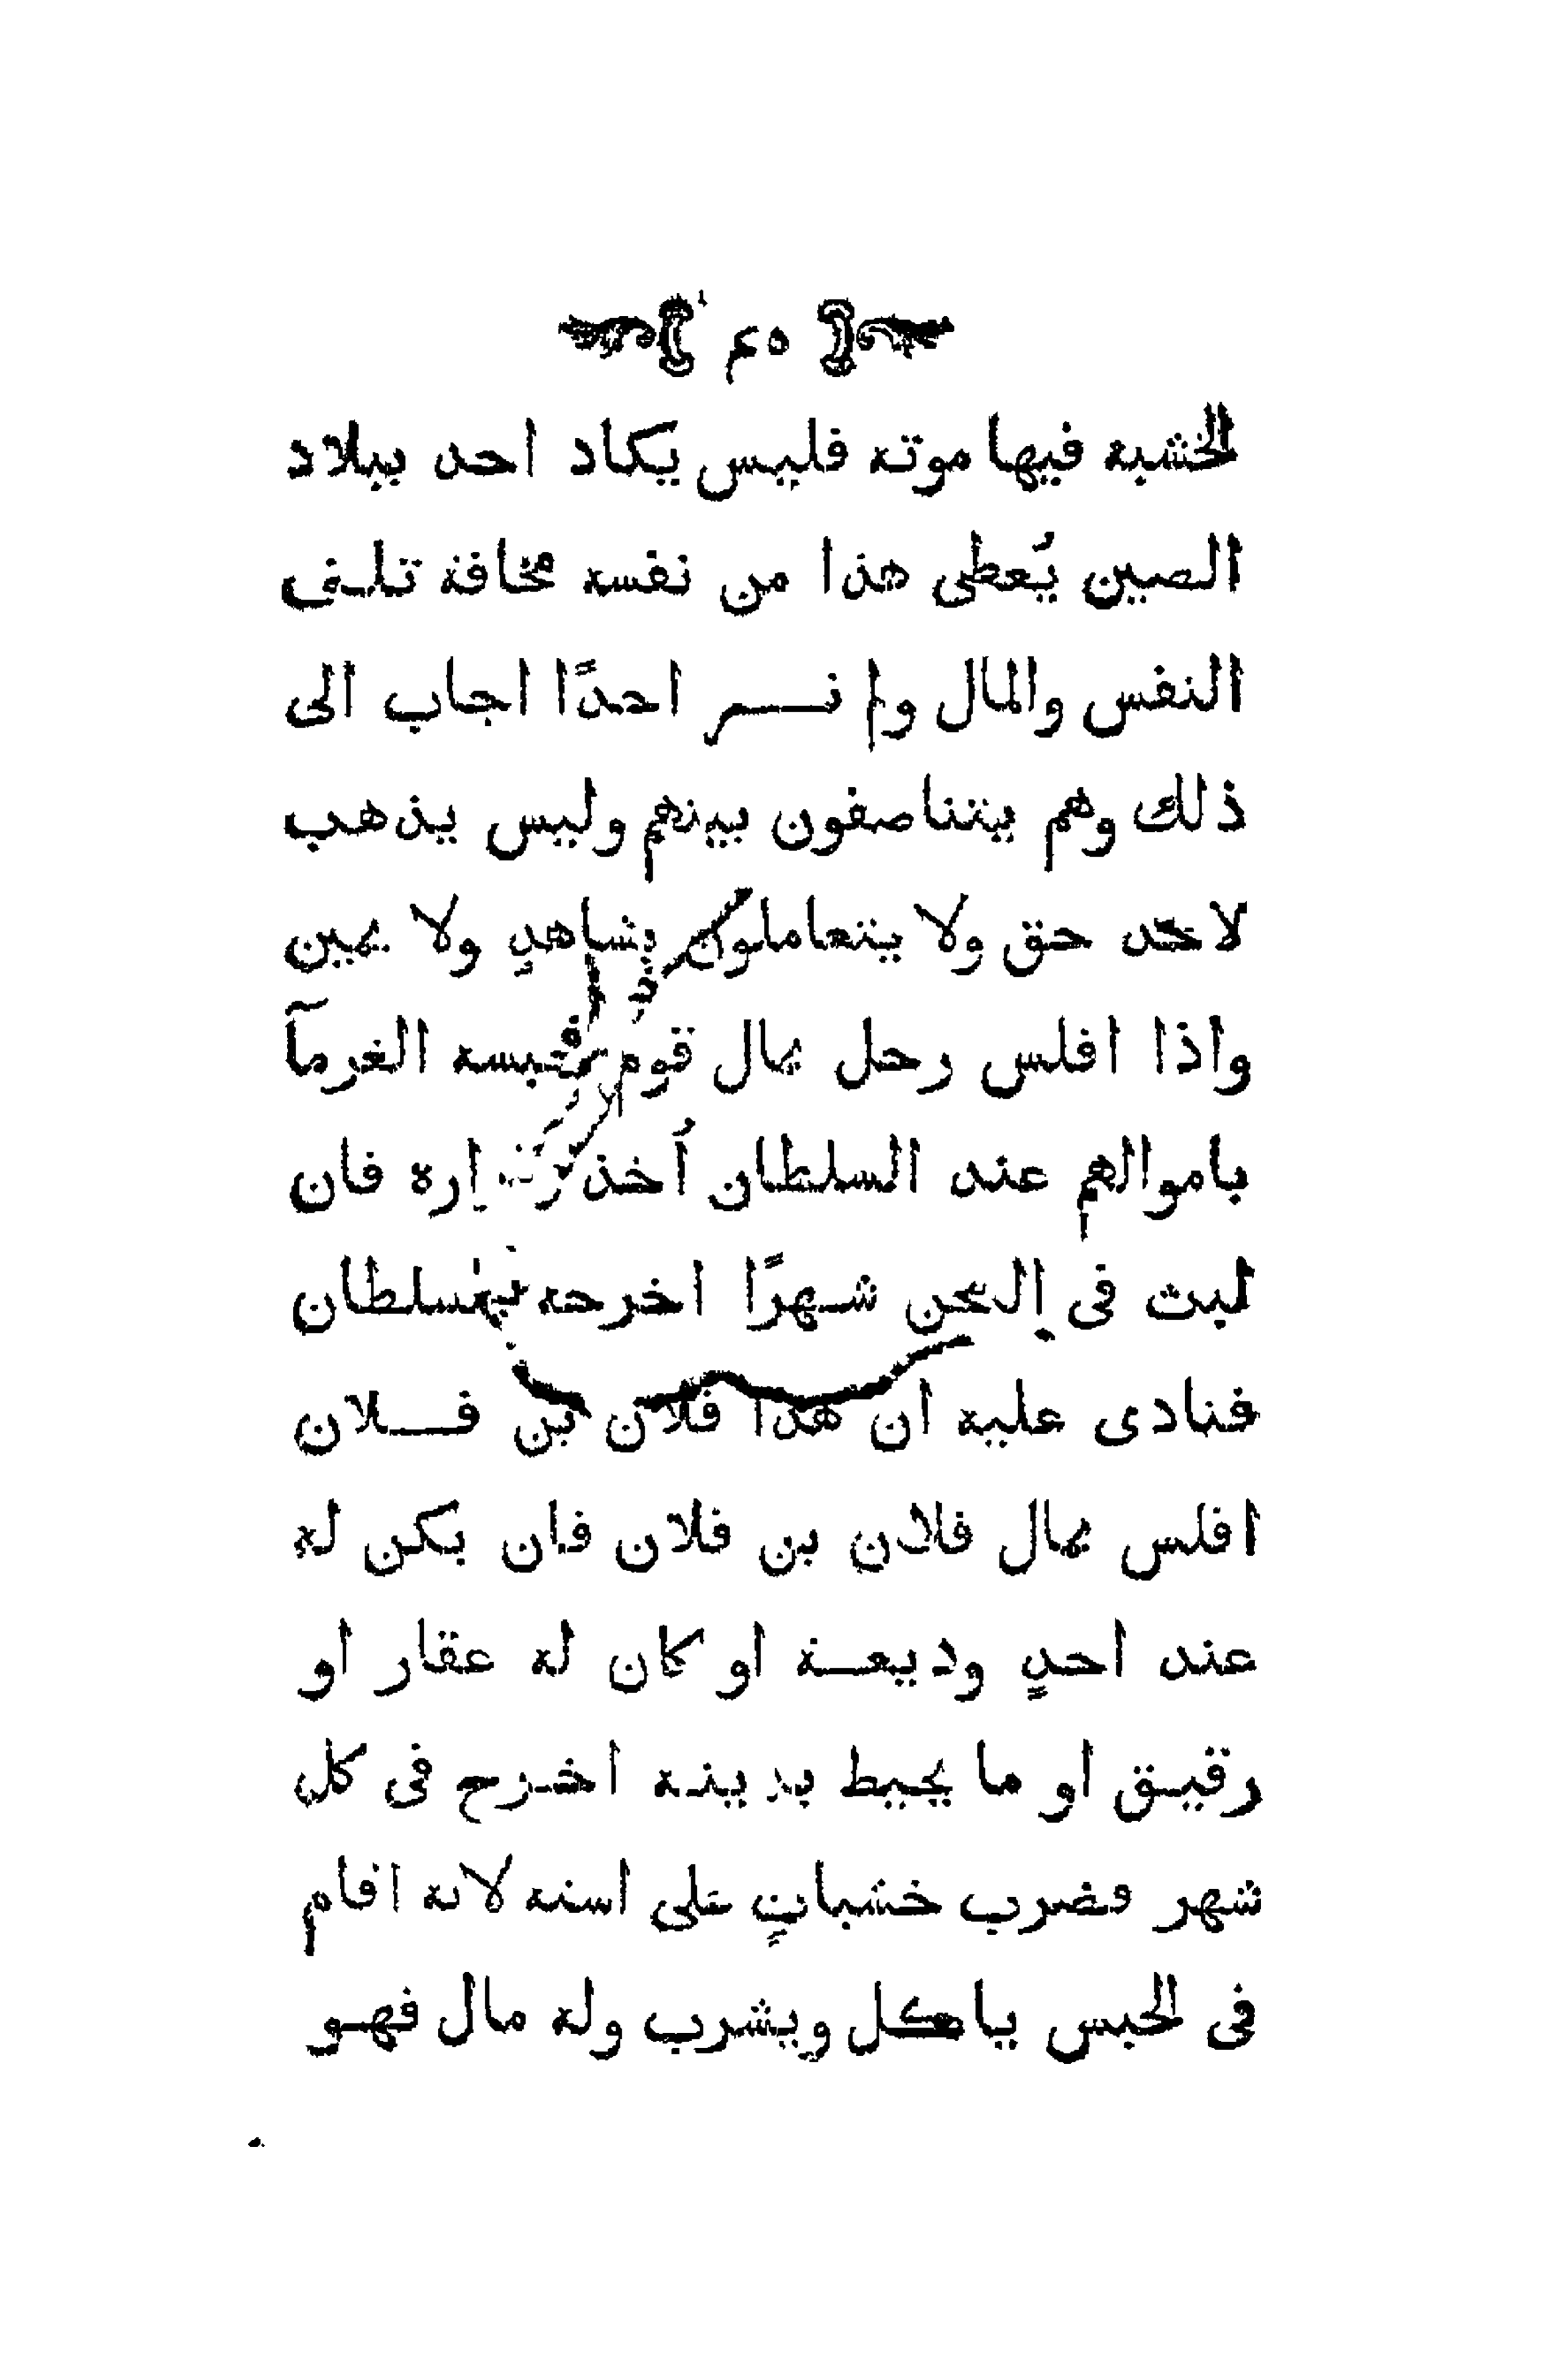 ٤٥
الخشبه فيها موته فليس يكاد احد ببلاد
الصين يُعطى هذا من نفسه مخافة تلف
النفس والمال ولم نر احدًا اجاب الى
ذلك وهم يتناصفون بينهم وليس يذهب
لاحد حق ولا يتعاملون بشاهدٍ ولا يمين
واذا افلس رجل بمال قوم فحبسه الغرمآ
باموالهم عند السلطان اُخذ فان
لبث فى السجن شهرًا اخرجه السلطان
فنادى عليه ان هذا فلان بن فلان
افلس بمال فلان بن فلان فان يكن له
عند احدٍ وديعة او كان له عقار او
رقيق او ما يحيط بدينه اخرج فى كل
شهر فضرب خشباتٍ على استه لانه اقام
فى الحبس ياكل ويشرب وله مال فهو